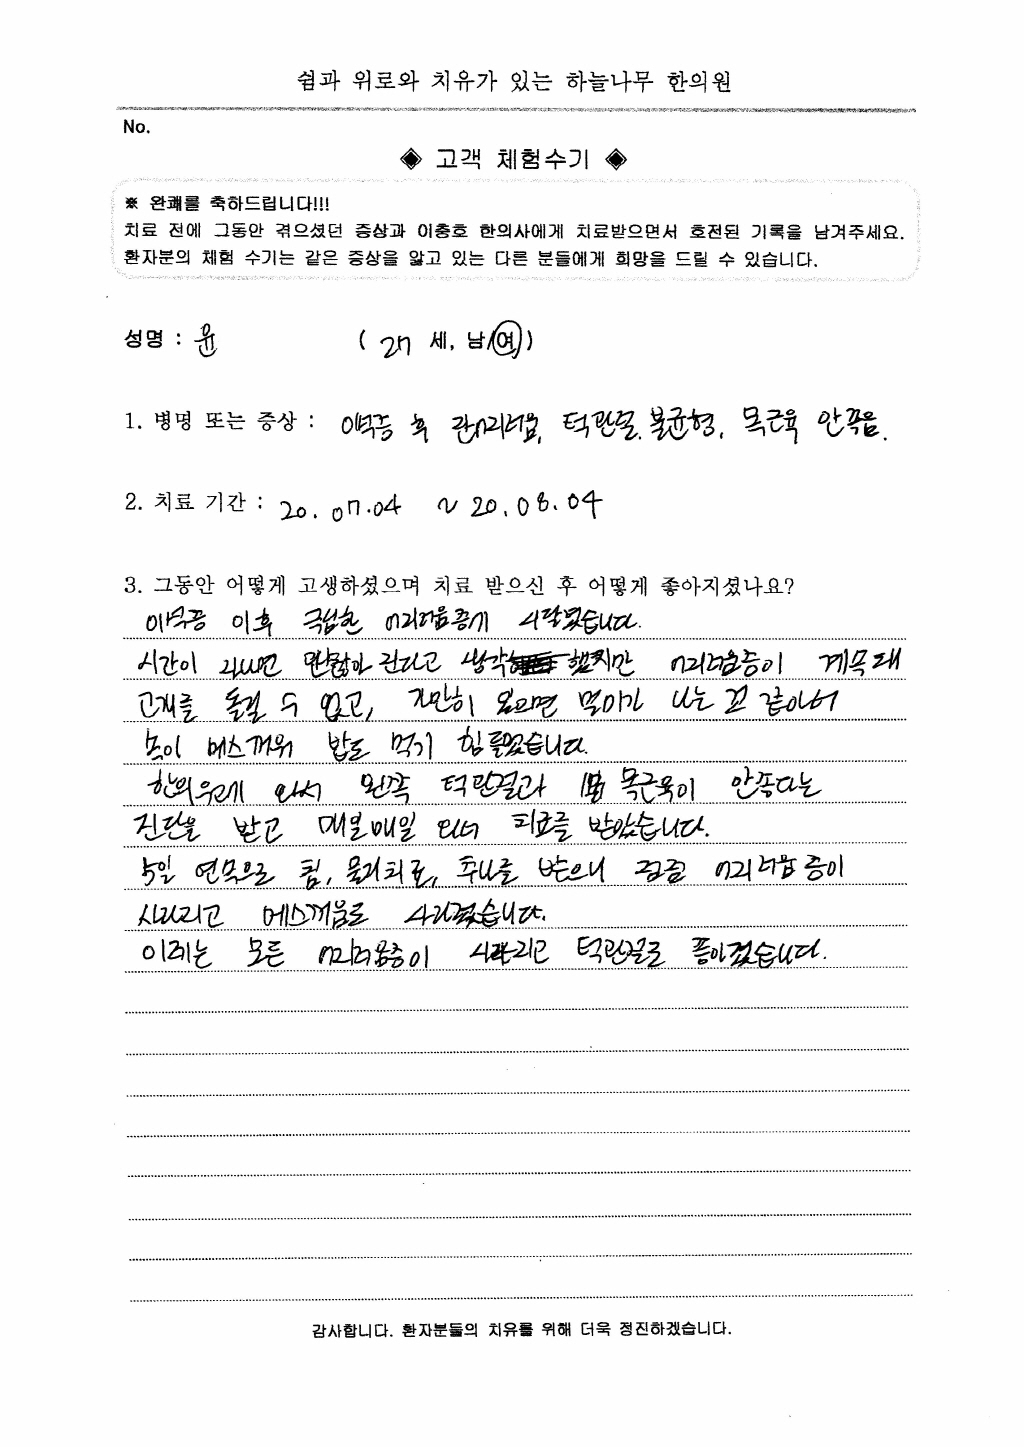 쉼과 위로와 치유가 있는 하늘나무 한의원
No.
◈ 고객 체험수기 ◈
※ 완쾌를 축하드립니다!!!
치료 전에 그동안 겪으셨던 증상과 이충호 한의사에게 치료받으면서 호전된 기록을 남겨주세요.
환자분의 체험 수기는 같은 증상을 앓고 있는 다른 분들에게 희망을 드릴 수 있습니다.
성명 : 윤 ( 27 세, 남/여 )
1. 병명 또는 증상 : 이석증 후 어지러움, 턱관절 불균형, 목근육 안좋음.
2. 치료 기간 : 20. 07. 04 ~ 20. 08. 04
3. 그동안 어떻게 고생하셨으며 치료 받으신 후 어떻게 좋아지셨나요?
이석증 이후 극심한 어지러움증이 시작됐습니다.
시간이 지나면 괜찮아 진다고 생각 했지만 어지러움증이 계속돼
고개를 돌릴 수 없고, 가만히 있으면 멀미가 나는 것 같아서
속이 메스꺼워 밥도 먹기 힘들었습니다.
한의원에 와서 왼쪽 턱관절과 목근육이 안좋다는
진단을 받고 매일매일 와서 치료를 받았습니다.
5일 연속으로 침, 물리치료, 추나를 받으니 점점 어지러움증이
사라지고 메스꺼움도 사라졌습니다.
이제는 모든 어지러움증이 사라지고 턱관절도 좋아졌습니다.
감사합니다. 환자분들의 치유를 위해 더욱 정진하겠습니다.